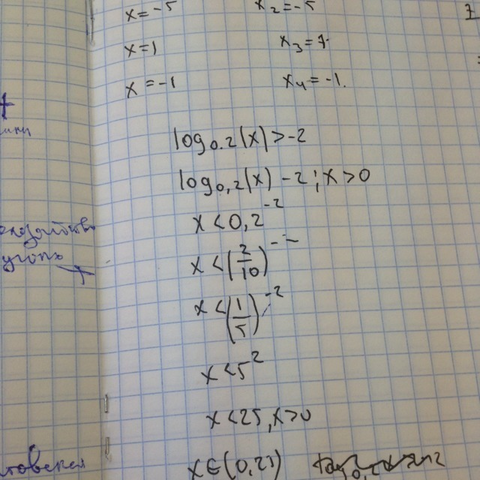 x=-5 x₂=-5
x=1 x₃=7.
x=-1 x₄=-1.
log₀.₂(x)>-2
log₀,₂(x) -2; x>0
x<0,2⁻²
x<(2/10)⁻⁻
x<(1/5)⁻²
x<5²
x<25, x>0
x∈(0,25)